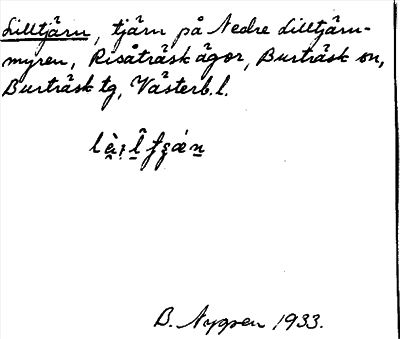 Lilltjärn, tjärn på Nedre Lilltjärn-
myren, Risåträsk ägor, Burträsk sn,
Burträsk tg, Västerb. l.
B. Nygren 1933.